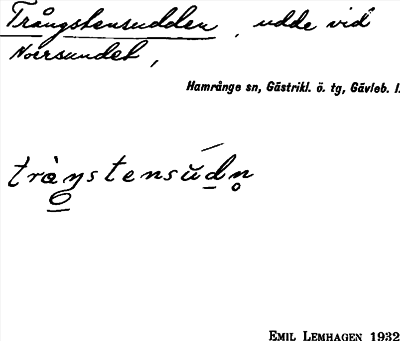 Trångstensudden, udde vid
Norrsundet,
Hamrånge sn, Gästrikl. ö. tg, Gävleb. l.
tràŋstensúdn̥
EMIL LEMHAGEN 1932